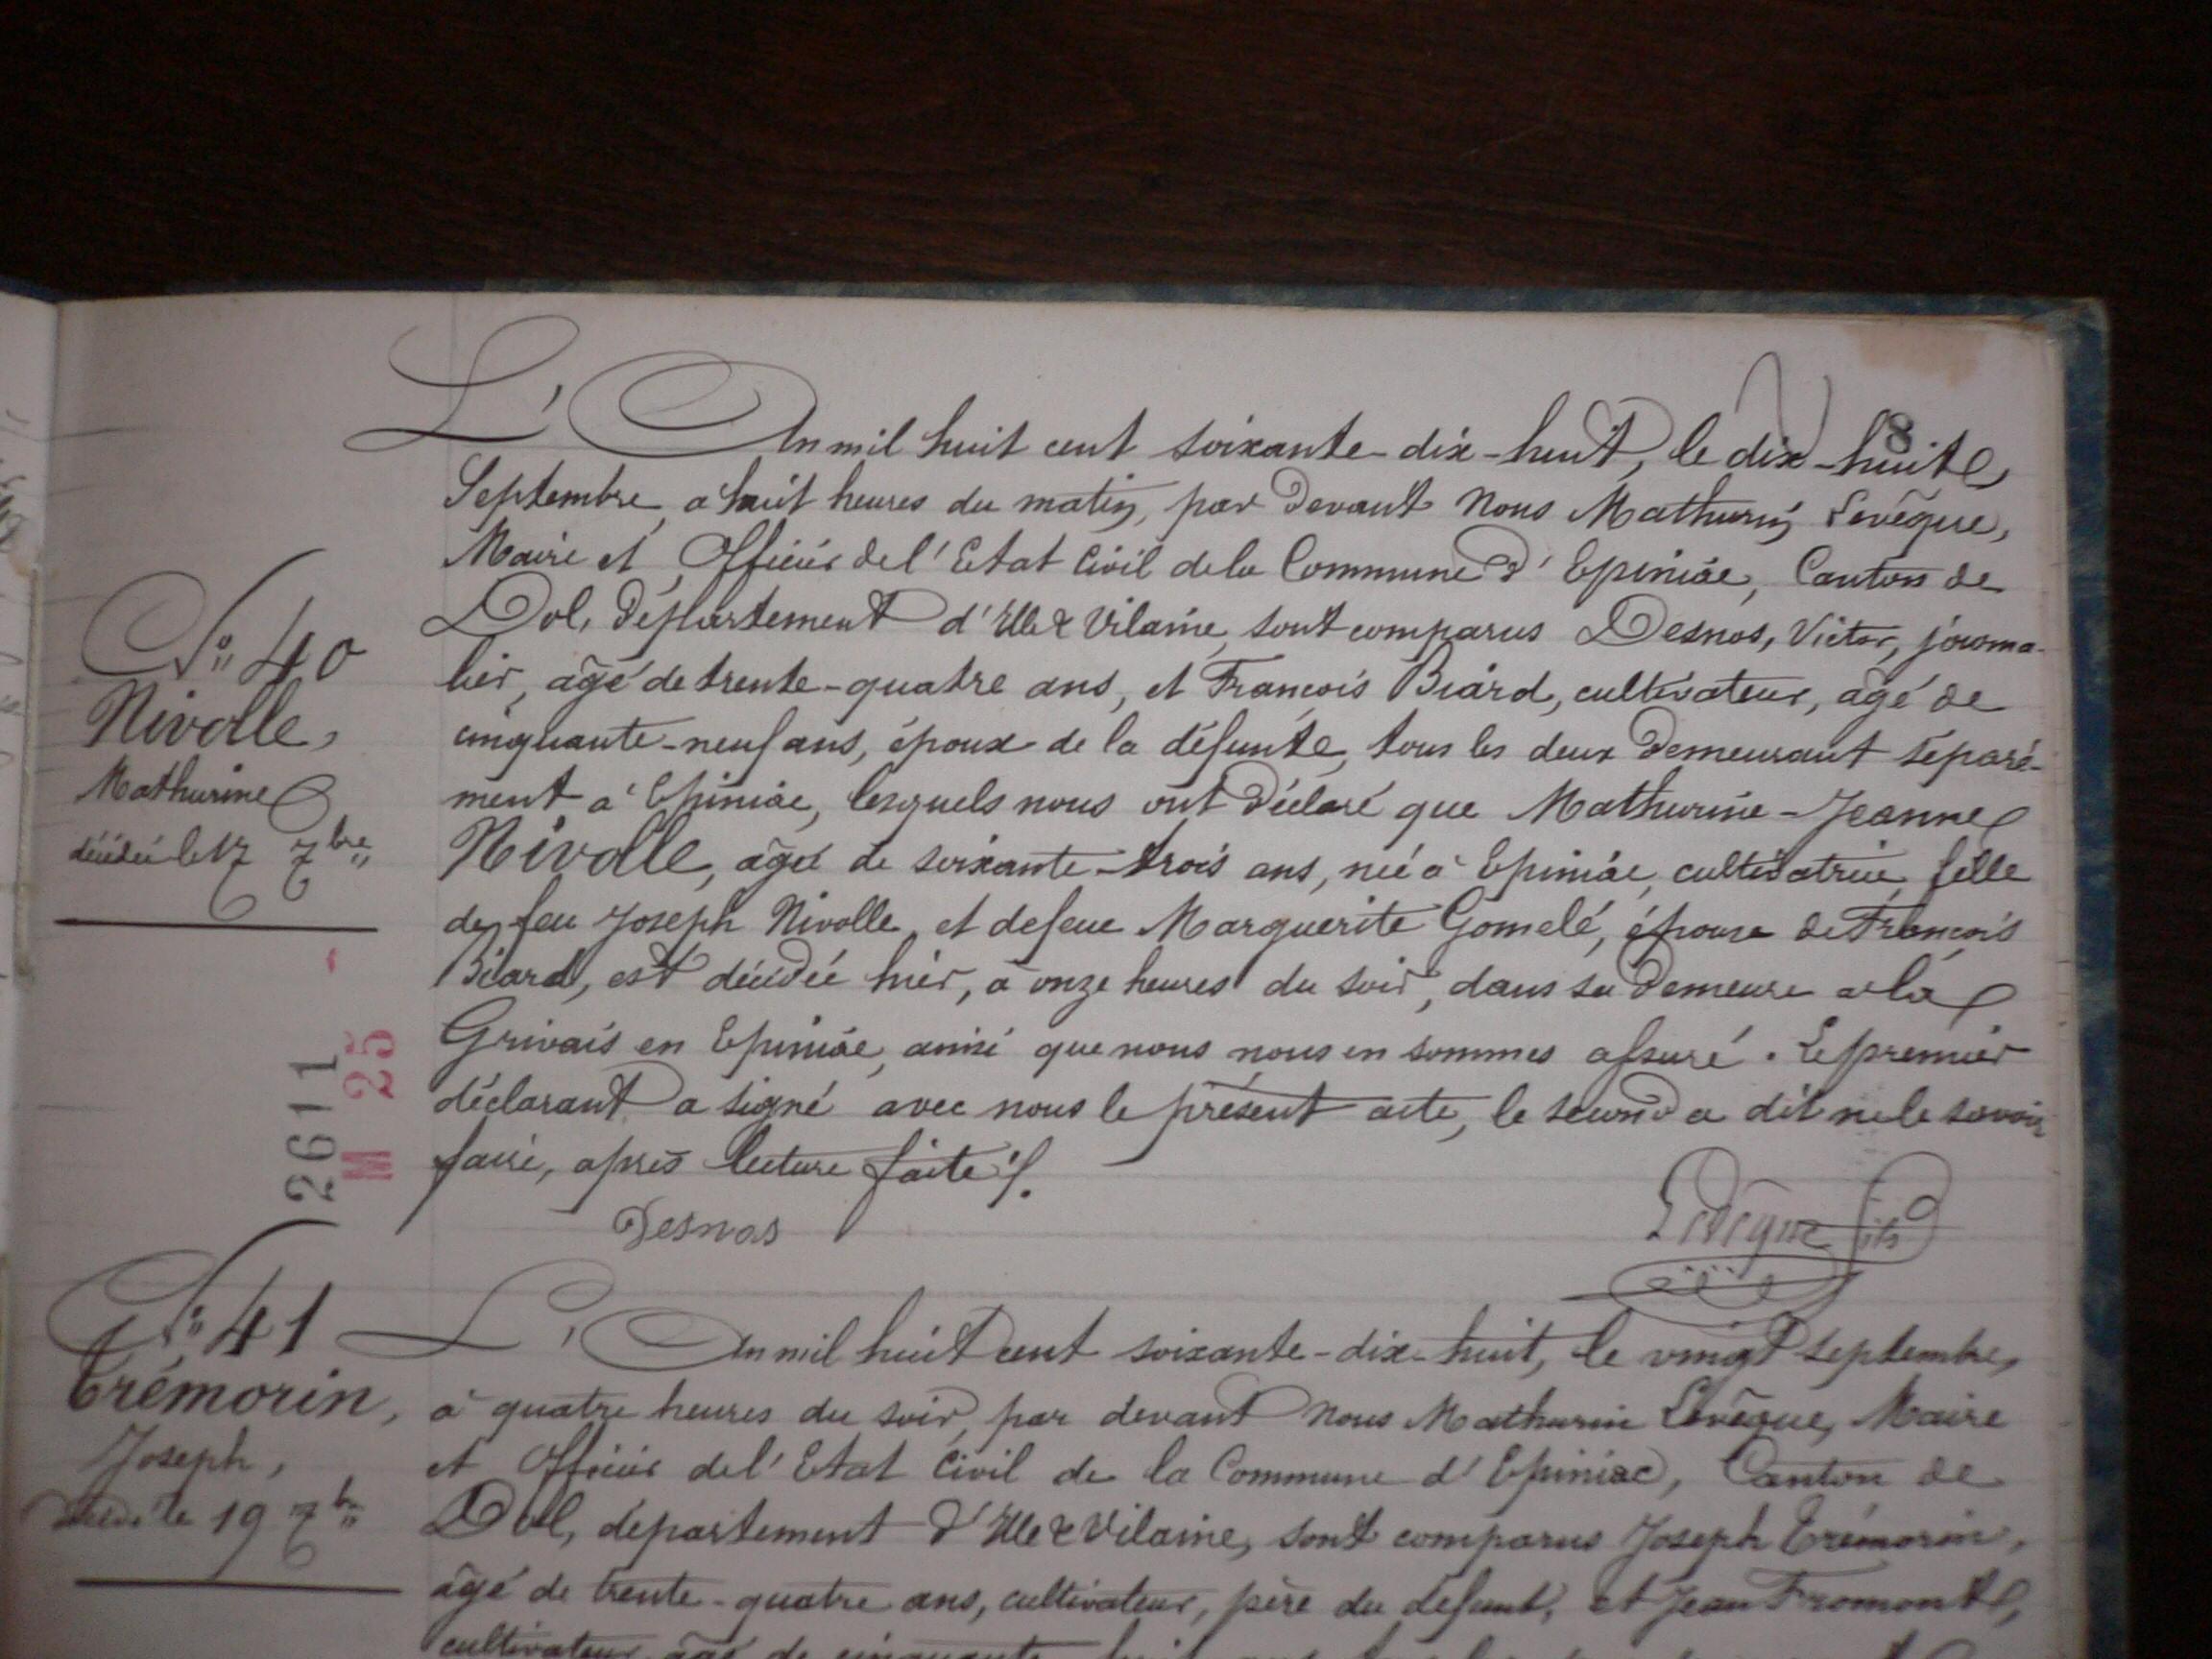 8
L'An mil huit cent soixante-dix-huit, le dix-huit
Septembre, a huit heures du matin, par devant Nous Mathurin Levêque,
Maire et Officier de l'Etat Civil de la Commune d'Epiniac, Canton de
Dol, Département d'Ille & Vilaine, sont comparus Desnos, Victor, journa-
lier, âgé de trente-quatre ans, et François Biard, cultivateur, âgé de
cinquante-neuf ans, époux de la défunte, tous les deux demeurant séparé-
ment à Epiniac, lesquels nous ont déclaré que Mathurine-Jeanne
Nivolle, âgée de soixante-trois ans, née à Epiniac, cultivatrice, fille
de feu Joseph Nivolle, et de feue Marguerite Gomelé, épouse de François
Biard, est décédée hier, à onze heures du soir, dans sa demeure à la
Grivais en Epiniac, ainsi que nous nous en sommes assuré. Le premier
déclarant a signé avec nous le présent acte, le second a dit ne le savoir
faire, après lecture faite ./.
Desnos
Levêque fils
N° 40
Nivolle,
Mathurine
décédée le 17 7bre
2611
M 25
N° 41
Trémorin,
Joseph,
décédé le 19 7bre
L'An mil huit cent soixante-dix-huit, le vingt septembre,
à quatre heures du soir, par devant Nous Mathurin Levêque, Maire
et Officier de l'Etat Civil de la Commune d'Epiniac, Canton de
Dol, département d'Ille & Vilaine, sont comparus Joseph Trémorin,
âgé de trente-quatre ans, cultivateur, père du défunt, et Jean Fromont,
cultivateur, âgé de cinquante huit ans